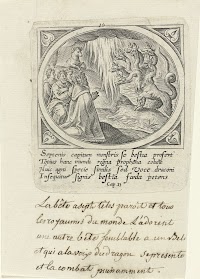 Septenis capitum monstris se bestia profert
Totius hanc mundi regna prophana colunt
Huic agni specie similis sed voce draconi
Insequitur signis bestia fœda potens
Cap. 13
La bête a sept têtes paroît et tous
les royaumes du monde l'adorent
une autre bête semblable a un Bel
et qui a la voix du dragon se presente
et la combat puissamment.